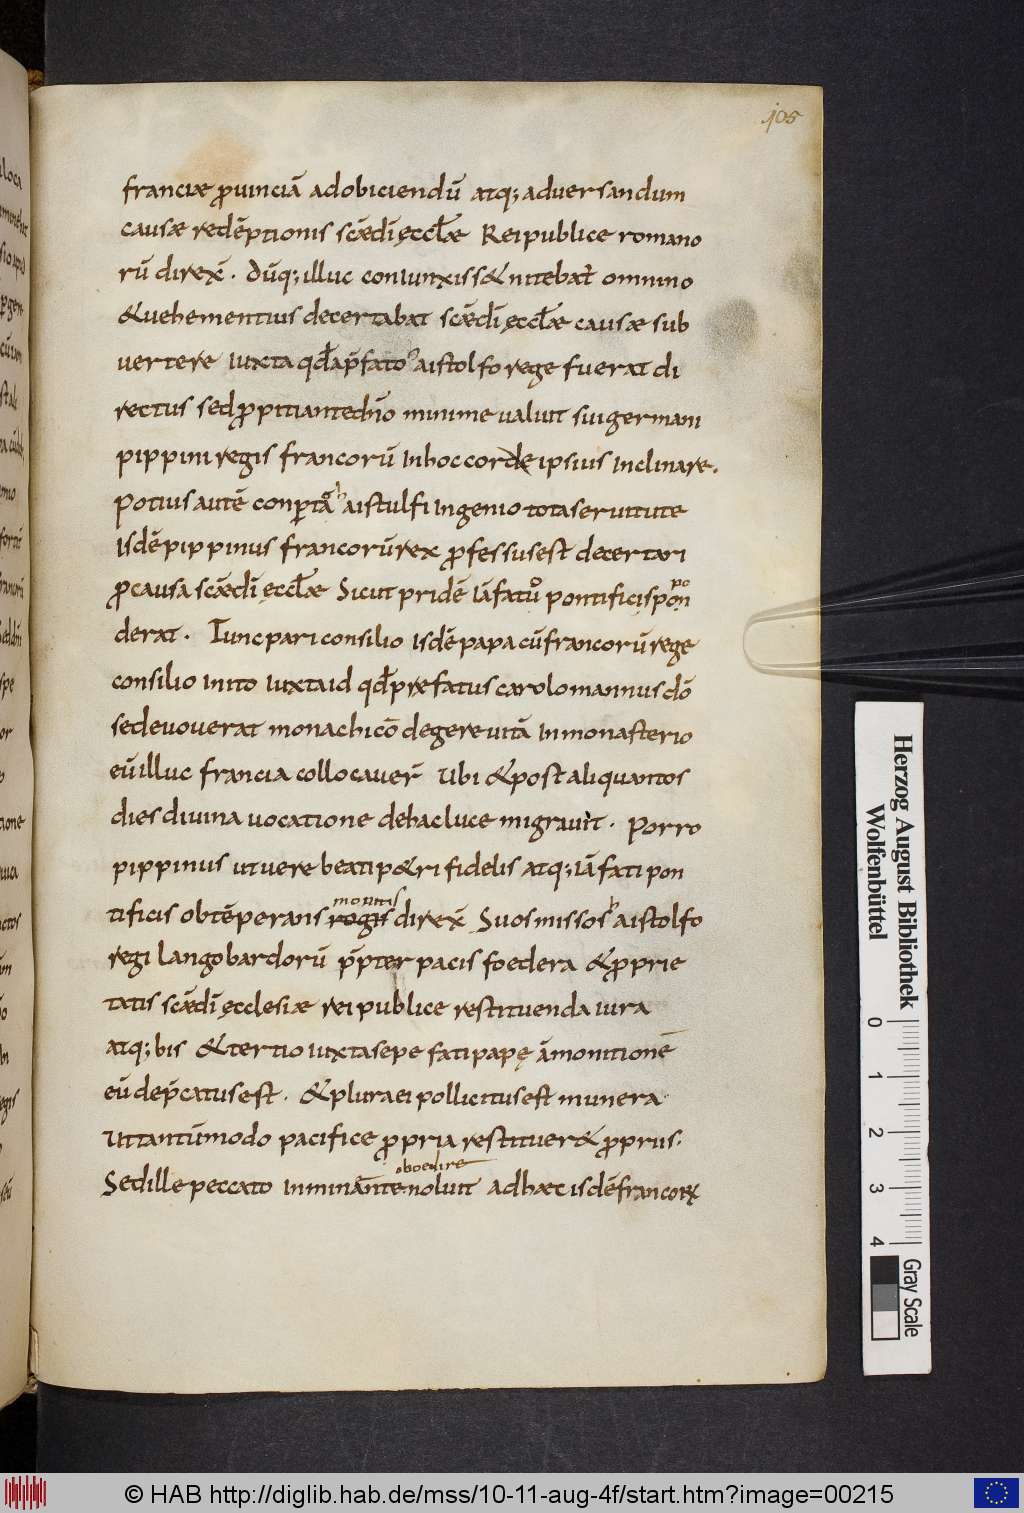 105
franciæ ꝓuinciā adobiciendū atq; aduersandum
causæ redēptionis scǣ dī ęccłæ Rei publice romano
rū direx̄. Dūq; illuc coniunxiss& nitebat̄ omnino
& uehementius decertabat scǣ dī ęccłæ causæ sub
uertere iuxta qđ a p̄fato aistolfo rege fuerat di
rectus sed ꝓpitiante dn̄o minime ualuit sui germani
pippini regis francorū In hoc cor de ipsius Inclinare.
Potius autē conp̱ta aistulfi Ingenio tota se ruitute
Isdē pippinus francorū rex ꝓfessus est decertari
ꝓ causa scǣ dī ęccłæ Sicut pridē iā fato pontifici spo pon
derat. Tunc pari consilio Isdē papa cū francorū rege
consilio inito iuxta id qđ præfatus carolomannus dō
se deuouerat monachicō degere uitā In monasterio
eū illuc francia collocauer̄ Ubi & post aliquantos
dies diuina uocatione de hac luce migrauit̄. Porro
pippinus ut uere beati p&ri fidelis atq; iā fati pon
tificis obtēperans monitis direx̄ Suos missos aistolfo
regi langobardorū p̄pter pacis foedera & ꝓprie
tatis scǣ dī ęcclesiæ rei publice restituenda iura
atq; bis & tertio iuxta sepe fati papę āmonitionē
eū dep̄catus est. & plura ei pollicitus est munera
Ut tantūmodo pacifice ꝓpria restituer& ꝓpriis.
Sed ille peccato inminante oboedire noluit ad hæc isdē francoꝝ
Herzog August Bibliothek
Wolfenbüttel
0 1 2 3 4
Gray Scale
© HAB http://diglib.hab.de/mss/10-11-aug-4f/start.htm?image=00215